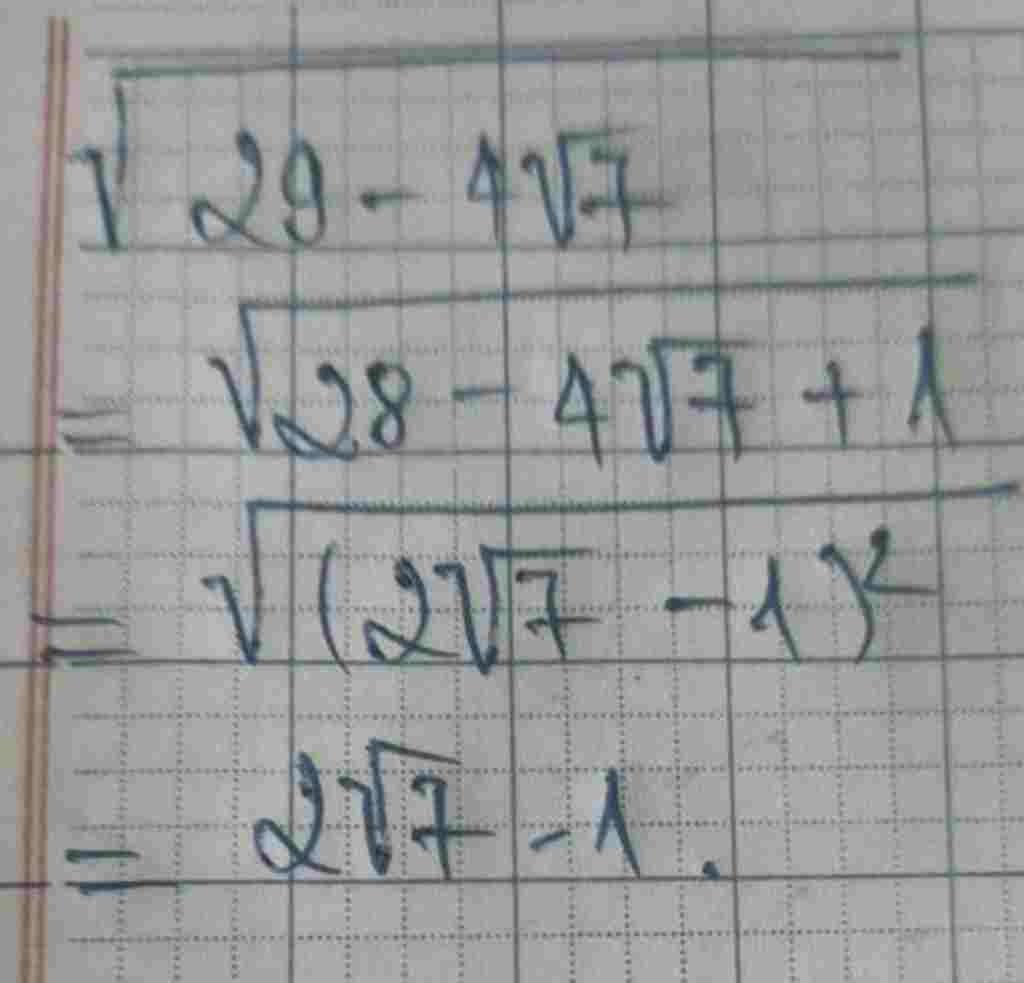 √(29 - 4√7)
= √(28 - 4√7 + 1)
= √((2√7 - 1)²)
= 2√7 - 1.